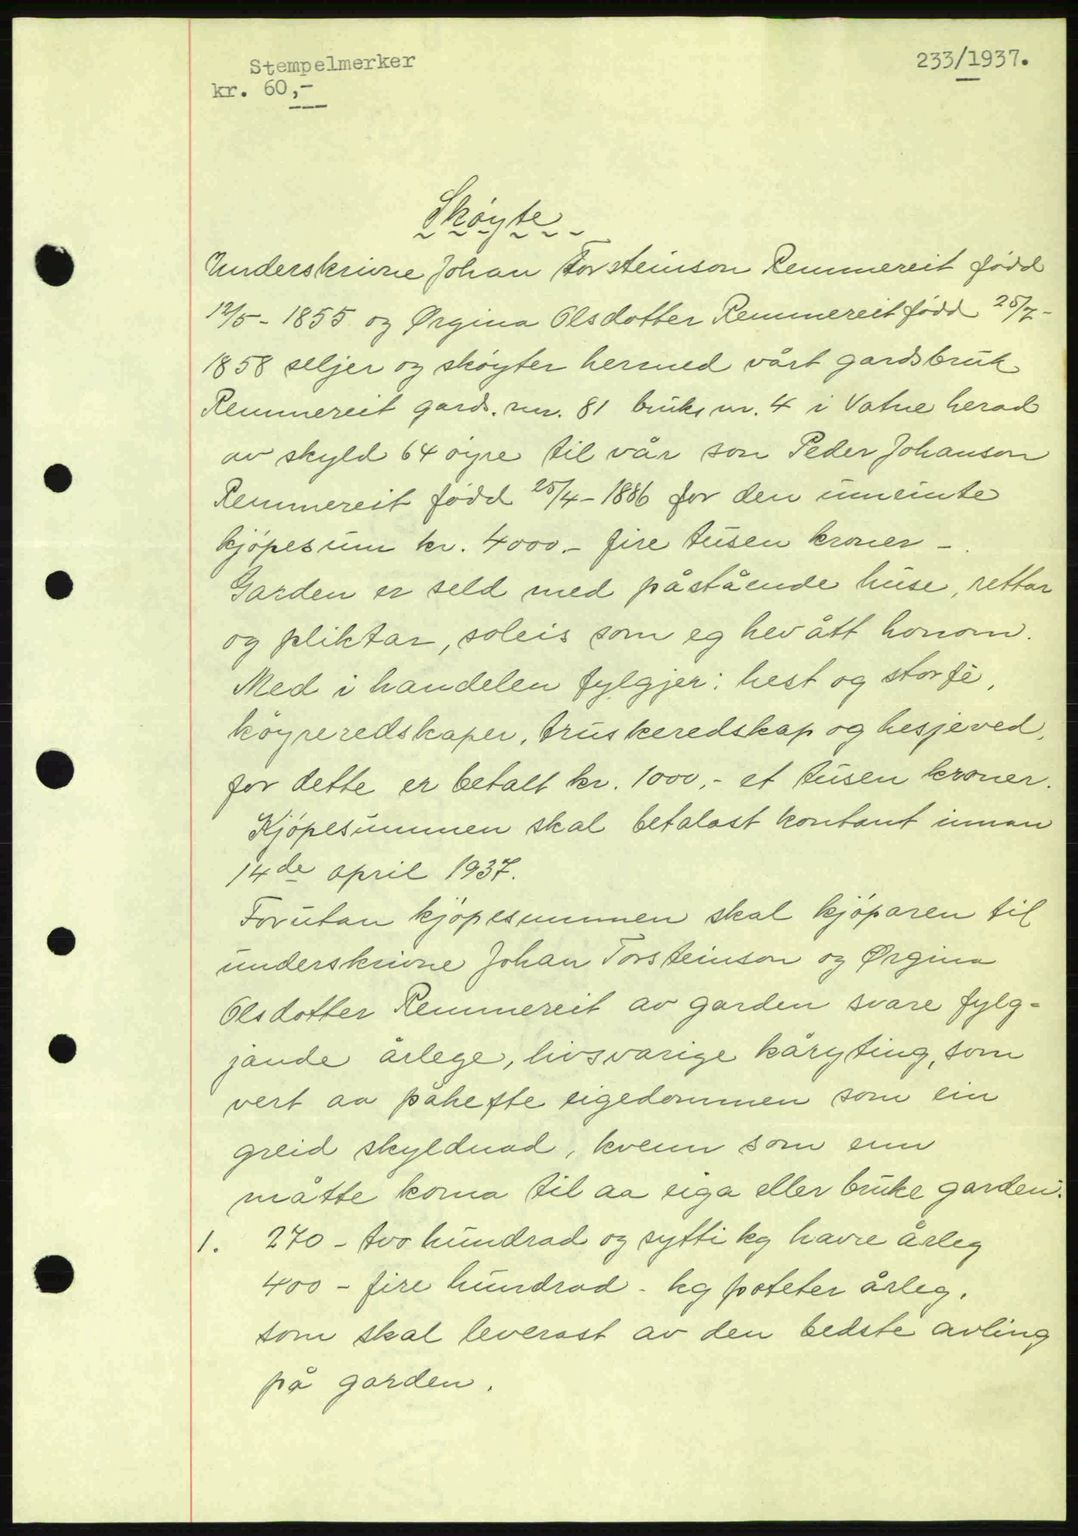 Stempelmerker
kr. 60,-
233/1937.
Skøyte
Underskrivne Johan Torsteinson Remmereit född
12/5- 1855 og Ørgina Olsdotter Remmereit född 25/7-
1858 seljer og skøyter hermed vårt gardsbruk
Remmereit gards. nr. 81 bruks nr. 4 i Vatne herad
av skyld 64 öyre til vår son Peder Johanson
Remmereit född 25/4-1886 for den umeinte
kjöpesum kr. 4000.- fire tusen kroner -.
Garden er seld med påstående huse, rettar
og pliktar, soleis som eg hev ått honom.
Med i handelen fylgjer: hest og storfè,
köyreredskaper, truskeredskap og hesjeved,
for dette er betalt kr. 1000,- et tusen kroner.
Kjöpesummen skal betalast kontant innan
14de april 1937.
Forutan kjöpesummen skal kjöparen til
underskrivne Johan Torsteinson og Ørgina
Olsdotter Remmereit av garden svare fylg-
jande årlege, livsvarige kåryting, som
vert aa påhefte eigedommen som ein
greid skyldnad, kvenn som enn
måtte koma til aa eiga eller bruke garden.
1. 270 - tvo hundrad og sytti kg havre årleg
400 - fire hundrad - kg poteter årleg.
som skal leverast av den bedste avling
på garden.